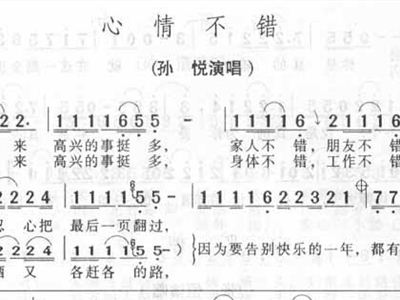 心情不错
(孙 悦演唱)
22. 1 1 1 1 6 5 5 - 1 1 1 1 6 1 1 1 1 6
来 高兴的事挺 多, 家人不 错, 朋友不 错
来 高兴的事挺 多, 身体不 错, 工作不 错
2 2 2 2 4 1 1 1 1 5 5 2 - 1 1 1 1 6 2 2 3 2 1 7 7
忍 心把 最后一页翻过,
2 2 2 4 1 1 1 1 5 5 2 - 因为要告别快乐的一年, 都有
酒 又 各赶各 的路,